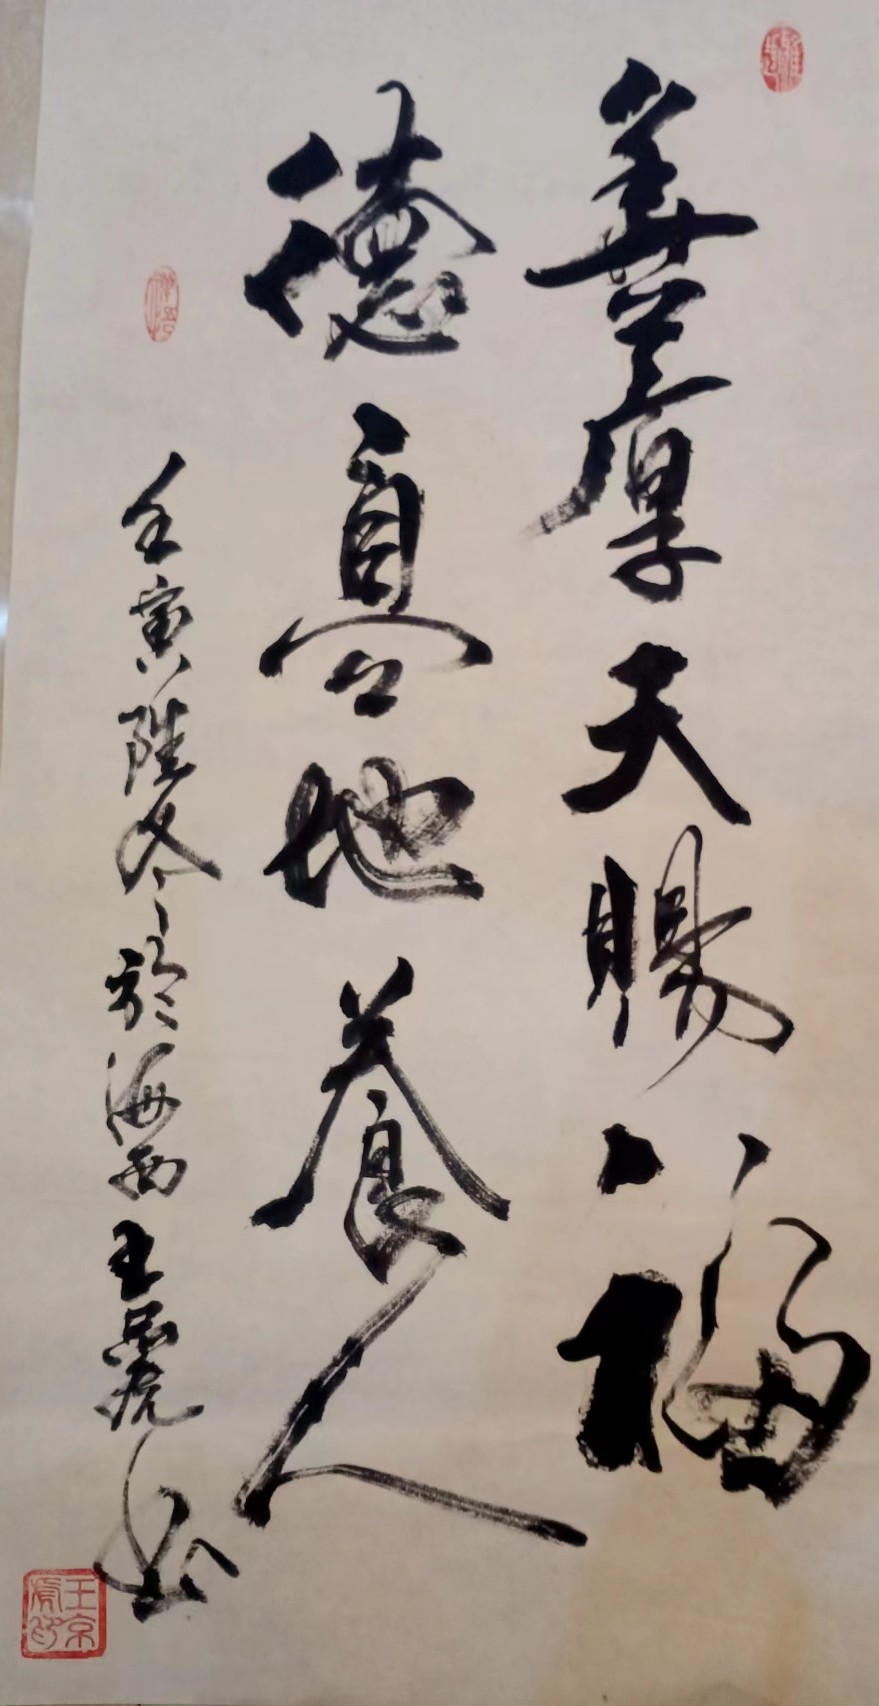 善厚天賜福
德高地養人
壬寅隆冬於海西王京虎书
王京虎印